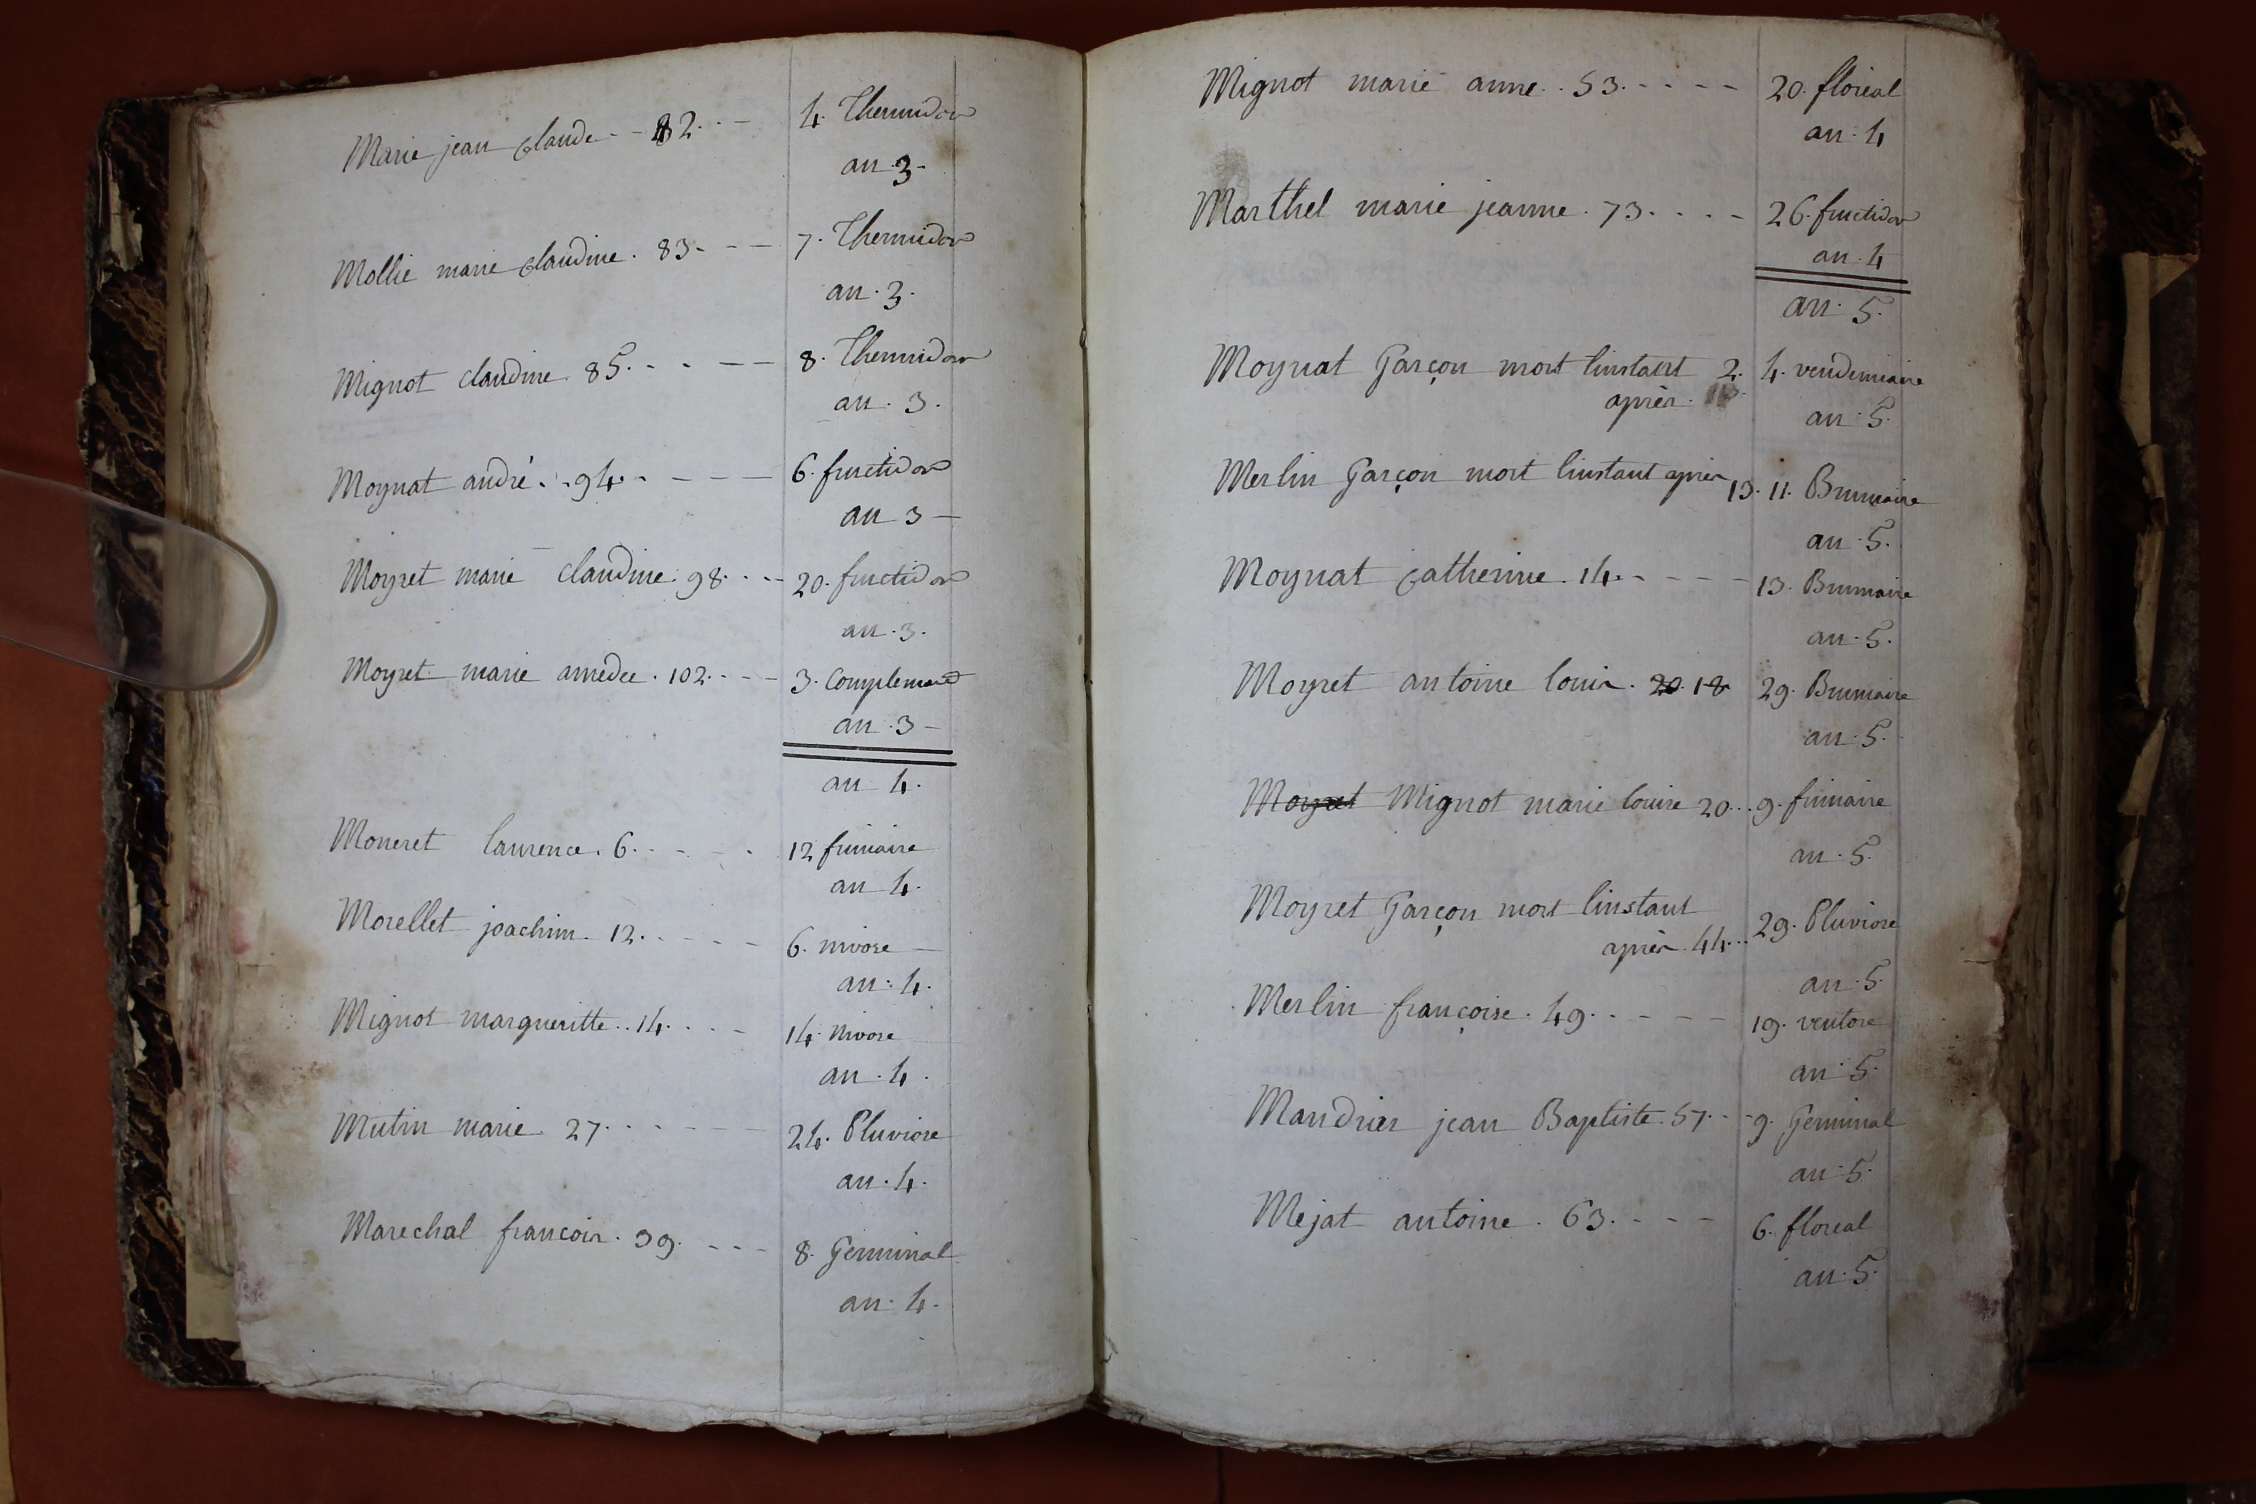 Marie jean claude - - 82. - - 4. Thermidor
an 3 -
Mollie marie claudine . 83 - - - 7. Thermidor
an . 3 .
Mignot claudine . 85 . - - - - 8. Thermidor
an . 3 .
Moynat andré . . 94 . - - - - 6. fructidor
an 3 -
Moyret marie claudine . 98 . - - 20. fructidor
an . 3 .
Moyret marie amedée . 102 . - - - 3. Complement
an . 3 -
an 4 .
Moneret laurence . 6 . - - - . 12 frimaire
an 4 .
Morellet joachim . 12 . - - - - 6. nivose
an . 4 .
Mignot margueritte . . 14 . - - - 14. Nivose
an . 4 .
Mutin marie . 27 . - - - - - - 24. Pluviose
an . 4 .
Marechal francois . 39 . - - - 8. Germinal
an . 4 .
Mignot marie anne . . 53 . - - - - 20. floreal
an . 4
Marthel marie jeanne . 73 . - - - 26. fructidor
an . 4
an . 5 .
Moynat Garçon mort linstant 2 . 4. vendemiaire
après .
an . 5 .
Merlin Garçon mort linstant après 13 . 11. Brumaire
an . 5 .
Moynat catherine . 14 . - - - - - 13. Brumaire
an . 5 .
Moyret antoine louis . 20 . 18 29. Brumaire
an . 5 .
Moyret Mignot marie louise 20 . . . 9. frimaire
an . 5 .
Moyret Garçon mort linstant
après . 44 . . . 29. Pluviose
an . 5
Merlin françoise . 49 . - - - - - 19. ventose
an . 5 .
Mandrier jean Baptiste . 57 . - - 9. Germinal
an . 5 .
Mejat antoine . 63 . - - - 6. floreal
an . 5 .